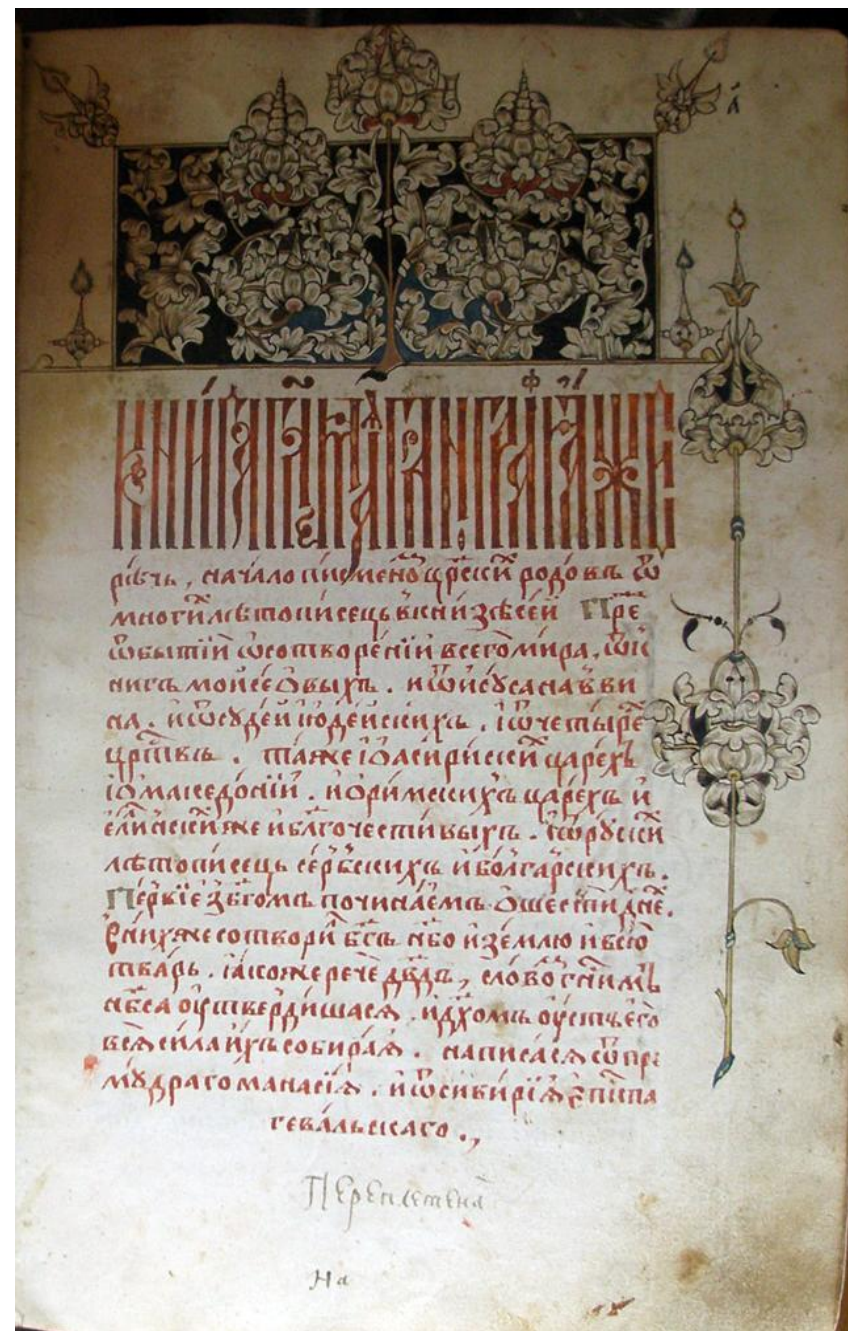 а҃
книга гл҃емая гранографъ сирѣчь
рѣчь , начало писмено црⷭ҇кихъ родовъ ѿ
многиⷯ лѣтописецъ в книзѣ сей Преⷤ
ѡ бытїи ѡ сотворенїи всего мира , ѿ к
нигъ моисеовыхъ . и ѡ исуса нав ви
на . и ѡ судей июдейскихъ . і ѡ четыреⷯ
црⷭ҇твъ . таже і о асирискиⷯ царехъ
і о македонїи . и о римскихъ царехъ и
елиⷩскиⷯ же и блг҃очестивыхъ . і ѿ рускиⷯ
лѣтописецъ сербскихъ и болгарскихъ .
Первїе з бг҃омъ починаемъ о шести дн҃е .
в них же сотвори бг҃ъ нб҃о и землю и всю
тварь . ꙗкоже рече дв҃дъ , словоⷨ гдⷭ҇нимъ
нб҃са ѹтвердишася . и дх҃омъ ѹстъ его
вся сила ихъ собирая . написася ѿ пре
мꙋдраго манасїя . и ѿ сивирїя еп҃кпа
гевальскаго .,
Переплетена
На